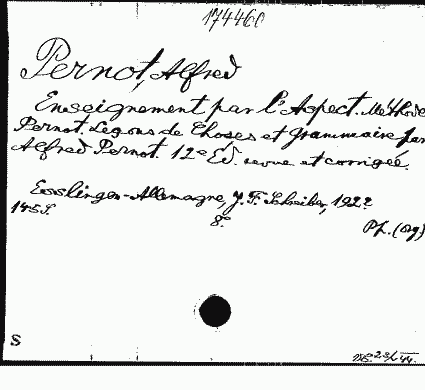 174460
Pernot, Alfred
Enseignement par l'Aspect. Méthode
Pernot. Leçons de Choses et Grammaire par
Alfred Pernot. 12e Ed. revue et corrigée.
Esslingen-Allemagne, J. F. Schreiber, 1922
145 S. 8°.
Pf. (
S